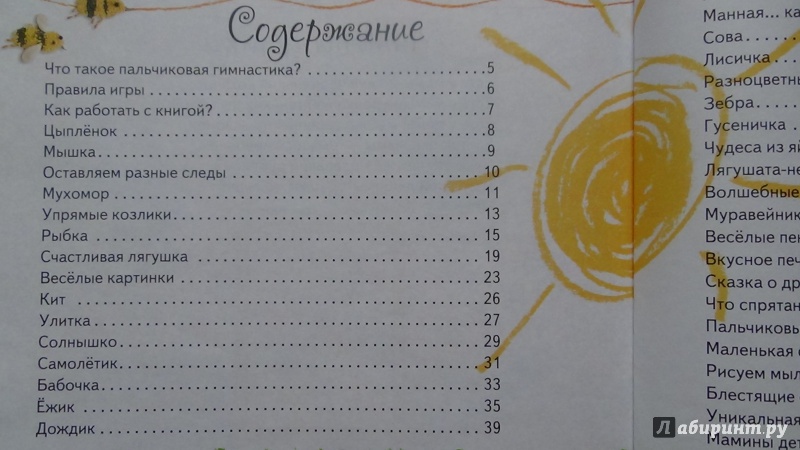 Содержание
Что такое пальчиковая гимнастика? ........................5
Правила игры ........................6
Как работать с книгой? ........................7
Цыплёнок ........................8
Мышка ........................9
Оставляем разные следы ........................10
Мухомор ........................11
Упрямые козлики ........................13
Рыбка ........................15
Счастливая лягушка ........................19
Весёлые картинки ........................23
Кит ........................26
Улитка ........................27
Солнышко ........................29
Самолётик ........................31
Бабочка ........................33
Ёжик ........................35
Дождик ........................39
Манная...
Сова
Лисичка
Зебра
Гусеничка
Чудеса из
Волшебные
Весёлые
Вкусное
Сказка о
Что
Маленькая
Рисуем
Блестящие
Уникальная
Мамины
Лабиринт.ру